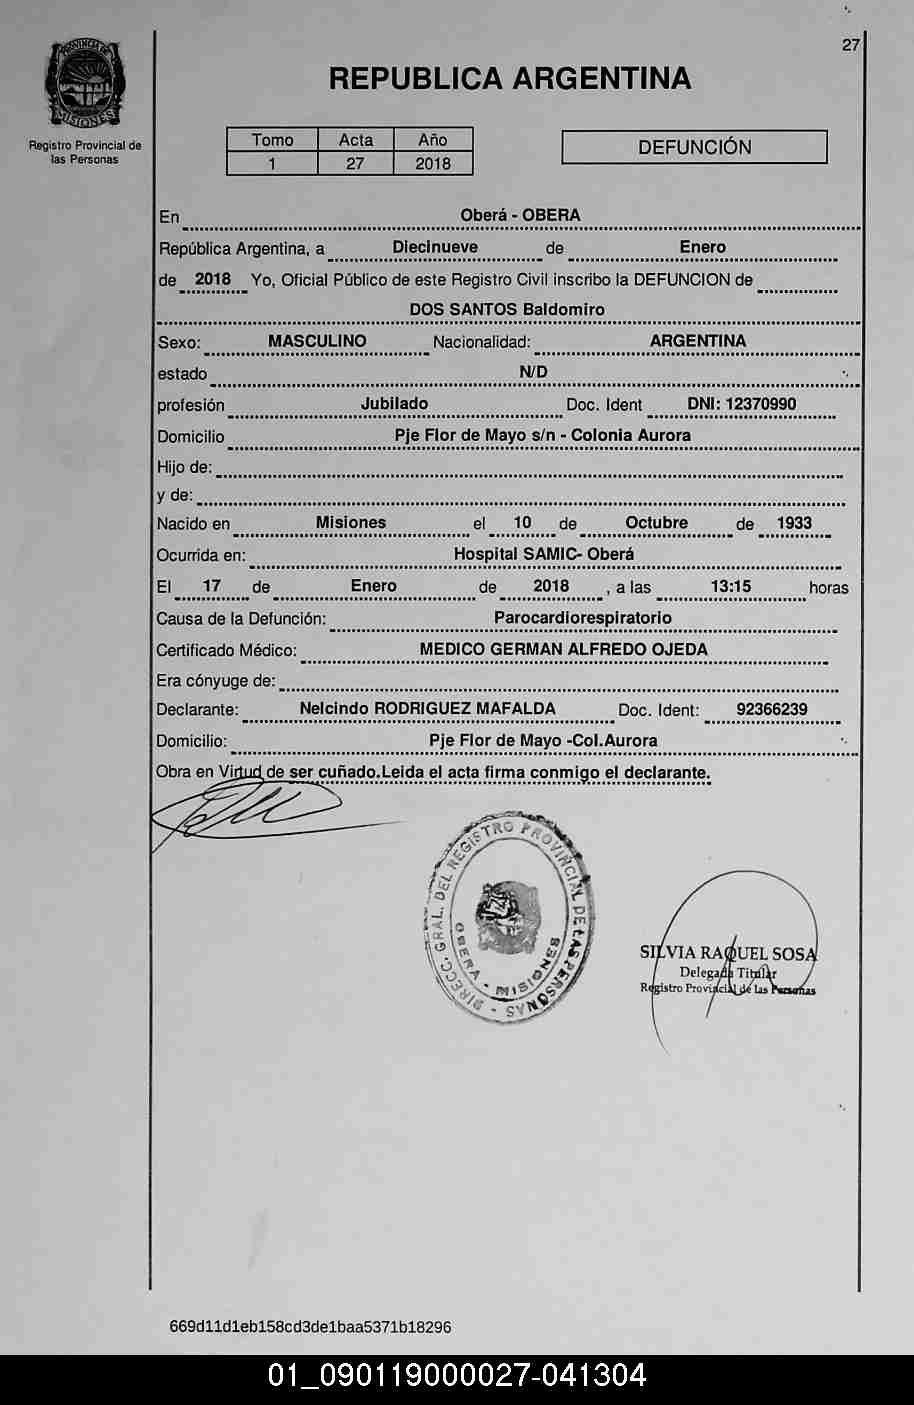 27
PROVINCIA DE
MISIONES
Registro Provincial de
las Personas
REPUBLICA ARGENTINA
Tomo Acta Año
1 27 2018
DEFUNCIÓN
En Oberá - OBERA
República Argentina, a Diecinueve de Enero
de 2018 Yo, Oficial Público de este Registro Civil inscribo la DEFUNCION de
DOS SANTOS Baldomiro
Sexo: MASCULINO Nacionalidad: ARGENTINA
estado N/D
profesión Jubilado Doc. Ident DNI: 12370990
Domicilio Pje Flor de Mayo s/n - Colonia Aurora
Hijo de:
y de:
Nacido en Misiones el 10 de Octubre de 1933
Ocurrida en: Hospital SAMIC- Oberá
El 17 de Enero de 2018 , a las 13:15 horas
Causa de la Defunción: Parocardiorespiratorio
Certificado Médico: MEDICO GERMAN ALFREDO OJEDA
Era cónyuge de:
Declarante: Nelcindo RODRIGUEZ MAFALDA Doc. Ident: 92366239
Domicilio: Pje Flor de Mayo -Col.Aurora
Obra en Virtud de ser cuñado.Leida el acta firma conmigo el declarante.
DIRECC. GRAL. DEL REGISTRO PROVINCIAL DE LAS PERSONAS -
OBERA - MISIONES
SILVIA RAQUEL SOSA
Delegada Titular
Registro Provincial de las Personas
669d11d1eb158cd3de1baa5371b18296
01_090119000027-041304